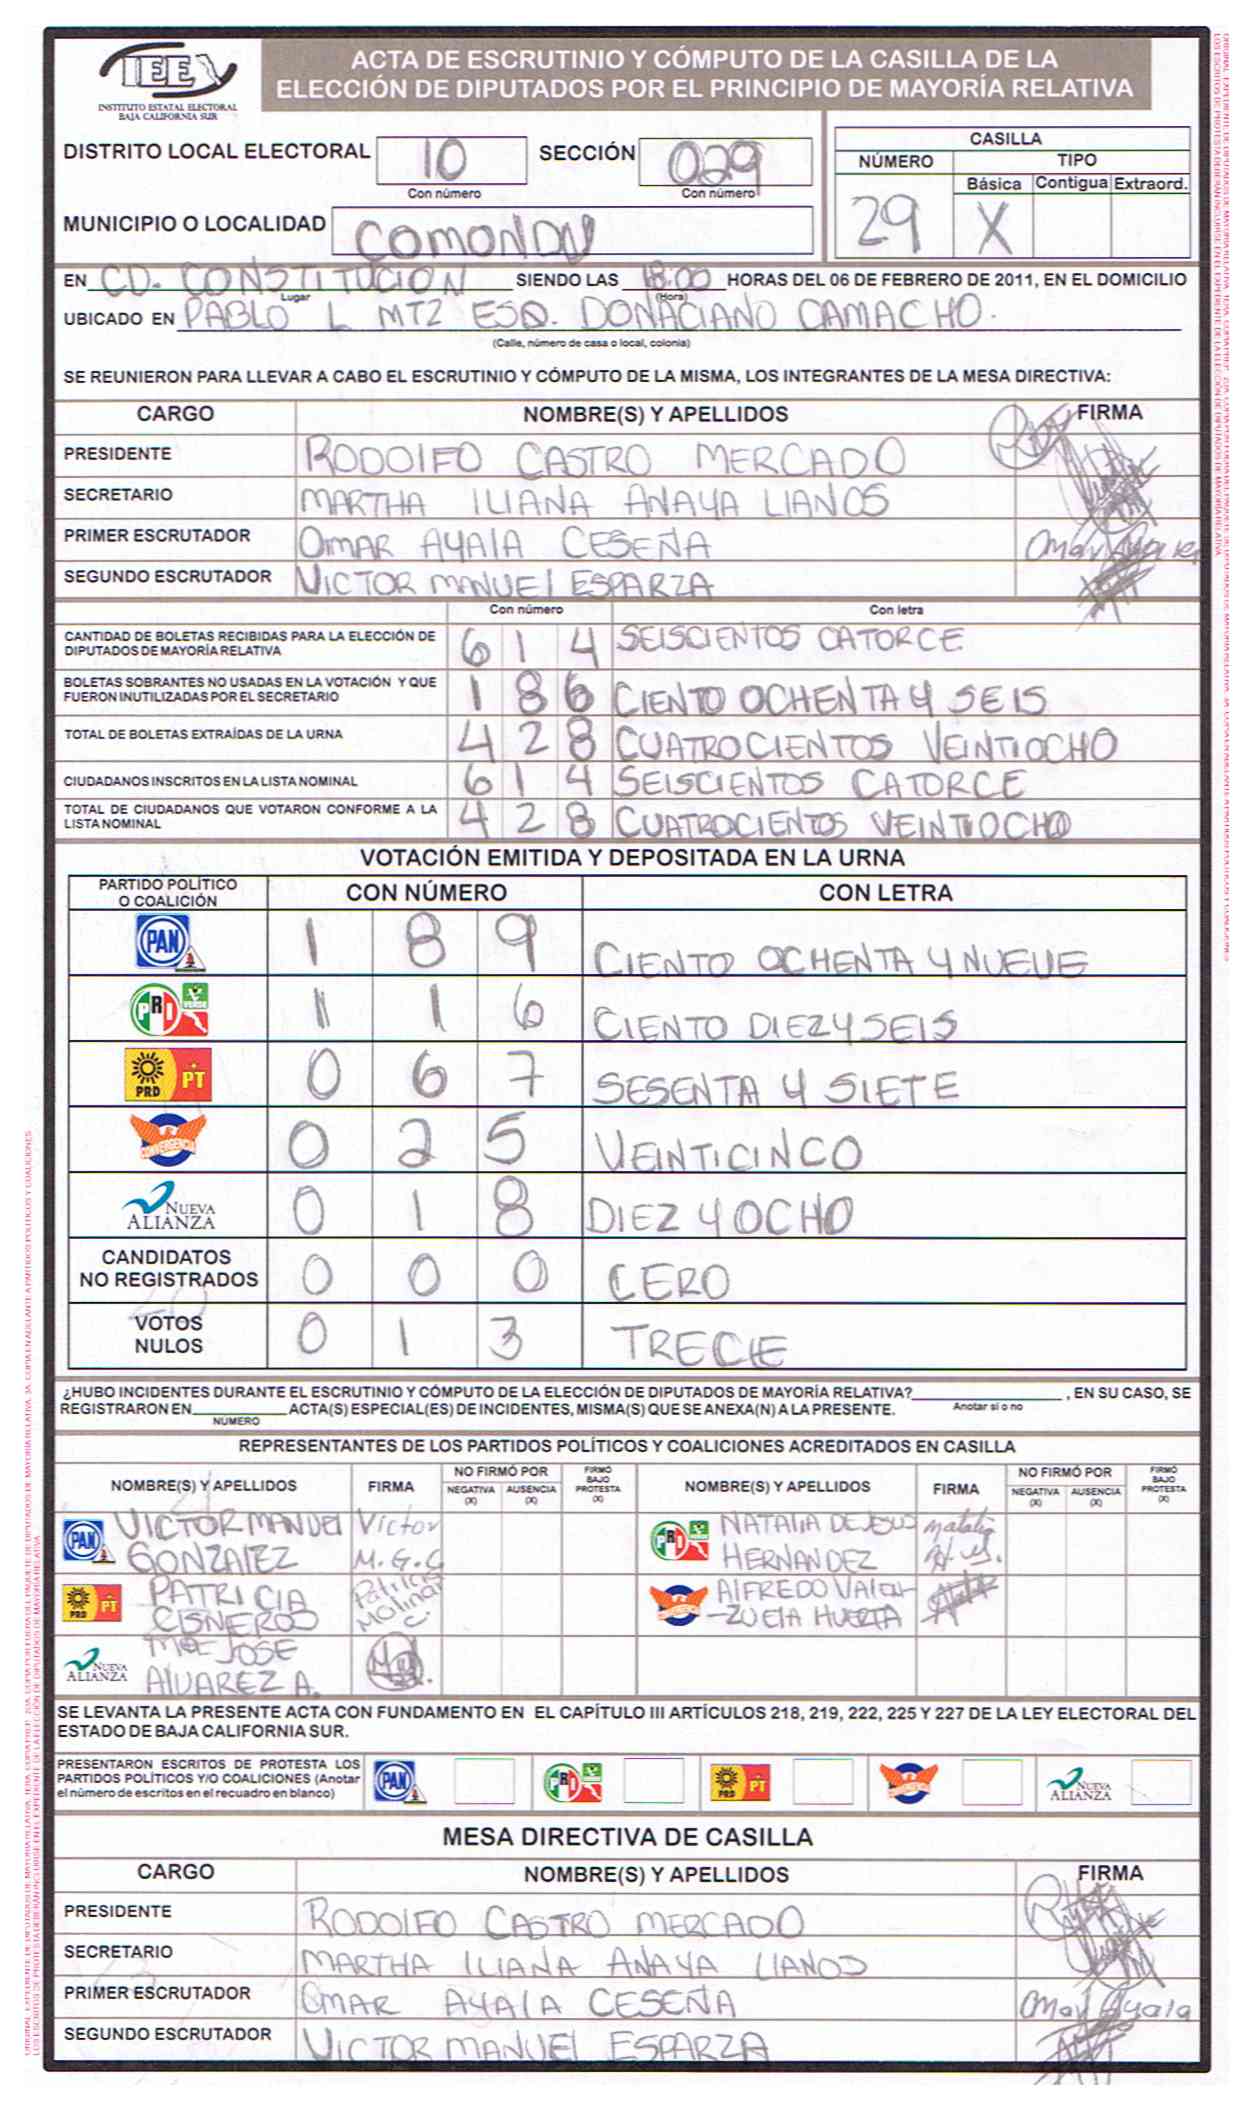 IEE
INSTITUTO ESTATAL ELECTORAL
BAJA CALIFORNIA SUR
ACTA DE ESCRUTINIO Y CÓMPUTO DE LA CASILLA DE LA
ELECCIÓN DE DIPUTADOS POR EL PRINCIPIO DE MAYORÍA RELATIVA
DISTRITO LOCAL ELECTORAL 10 SECCIÓN 029
Con número Con número
CASILLA
NÚMERO TIPO
Básica Contigua Extraord.
29 X
MUNICIPIO O LOCALIDAD COMONDU
EN CD. CONSTITUCION SIENDO LAS 18:00 HORAS DEL 06 DE FEBRERO DE 2011, EN EL DOMICILIO
Lugar (Hora)
UBICADO EN PABLO L MTZ ESQ. DONACIANO CAMACHO.
(Calle, número de casa o local, colonia)
SE REUNIERON PARA LLEVAR A CABO EL ESCRUTINIO Y CÓMPUTO DE LA MISMA, LOS INTEGRANTES DE LA MESA DIRECTIVA:
CARGO NOMBRE(S) Y APELLIDOS FIRMA
PRESIDENTE RODOLFO CASTRO MERCADO
SECRETARIO MARTHA ILIANA ANAYA LLANOS
PRIMER ESCRUTADOR OMAR AYALA CESEÑA Omar Ayala
SEGUNDO ESCRUTADOR VICTOR MANUEL ESPARZA
Con número Con letra
CANTIDAD DE BOLETAS RECIBIDAS PARA LA ELECCIÓN DE
DIPUTADOS DE MAYORÍA RELATIVA 6 1 4 SEISCIENTOS CATORCE
BOLETAS SOBRANTES NO USADAS EN LA VOTACIÓN Y QUE
FUERON INUTILIZADAS POR EL SECRETARIO 1 8 6 CIENTO OCHENTA Y SEIS
TOTAL DE BOLETAS EXTRAÍDAS DE LA URNA 4 2 8 CUATROCIENTOS VEINTIOCHO
CIUDADANOS INSCRITOS EN LA LISTA NOMINAL 6 1 4 SEISCIENTOS CATORCE
TOTAL DE CIUDADANOS QUE VOTARON CONFORME A LA
LISTA NOMINAL 4 2 8 CUATROCIENTOS VEINTIOCHO
VOTACIÓN EMITIDA Y DEPOSITADA EN LA URNA
PARTIDO POLÍTICO
O COALICIÓN CON NÚMERO CON LETRA
PAN 1 8 9 CIENTO OCHENTA Y NUEVE
PRI VERDE 1 1 6 CIENTO DIEZ Y SEIS
PRD PT 0 6 7 SESENTA Y SIETE
CONVERGENCIA 0 2 5 VEINTICINCO
NUEVA ALIANZA 0 1 8 DIEZ Y OCHO
CANDIDATOS
NO REGISTRADOS 0 0 0 CERO
VOTOS
NULOS 0 1 3 TRECE
¿HUBO INCIDENTES DURANTE EL ESCRUTINIO Y CÓMPUTO DE LA ELECCIÓN DE DIPUTADOS DE MAYORÍA RELATIVA? , EN SU CASO, SE
Anotar si o no
REGISTRARON EN ACTA(S) ESPECIAL(ES) DE INCIDENTES, MISMA(S) QUE SE ANEXA(N) A LA PRESENTE.
NÚMERO
REPRESENTANTES DE LOS PARTIDOS POLÍTICOS Y COALICIONES ACREDITADOS EN CASILLA
NOMBRE(S) Y APELLIDOS FIRMA NO FIRMÓ POR NEGATIVA (X) AUSENCIA (X) FIRMÓ BAJO PROTESTA (X) NOMBRE(S) Y APELLIDOS FIRMA NO FIRMÓ POR NEGATIVA (X) AUSENCIA (X) FIRMÓ BAJO PROTESTA (X)
PAN VICTOR MANUEL Victor PRI VERDE NATALIA DE JESUS Natalia
GONZALEZ M.G.C HERNANDEZ
PRD PT PATRICIA Patricia CONVERGENCIA ALFREDO VALEN-
CISNEROS Molinar C. ZUELA HUERTA
NUEVA ALIANZA Ma JOSE
ALVAREZ A.
SE LEVANTA LA PRESENTE ACTA CON FUNDAMENTO EN EL CAPÍTULO III ARTÍCULOS 218, 219, 222, 225 Y 227 DE LA LEY ELECTORAL DEL
ESTADO DE BAJA CALIFORNIA SUR.
PRESENTARON ESCRITOS DE PROTESTA LOS
PARTIDOS POLÍTICOS Y/O COALICIONES (Anotar
el número de escritos en el recuadro en blanco)
PAN PRI VERDE PRD PT CONVERGENCIA NUEVA ALIANZA
MESA DIRECTIVA DE CASILLA
CARGO NOMBRE(S) Y APELLIDOS FIRMA
PRESIDENTE RODOLFO CASTRO MERCADO
SECRETARIO MARTHA ILIANA ANAYA LLANOS
PRIMER ESCRUTADOR OMAR AYALA CESEÑA Omar Ayala
SEGUNDO ESCRUTADOR VICTOR MANUEL ESPARZA